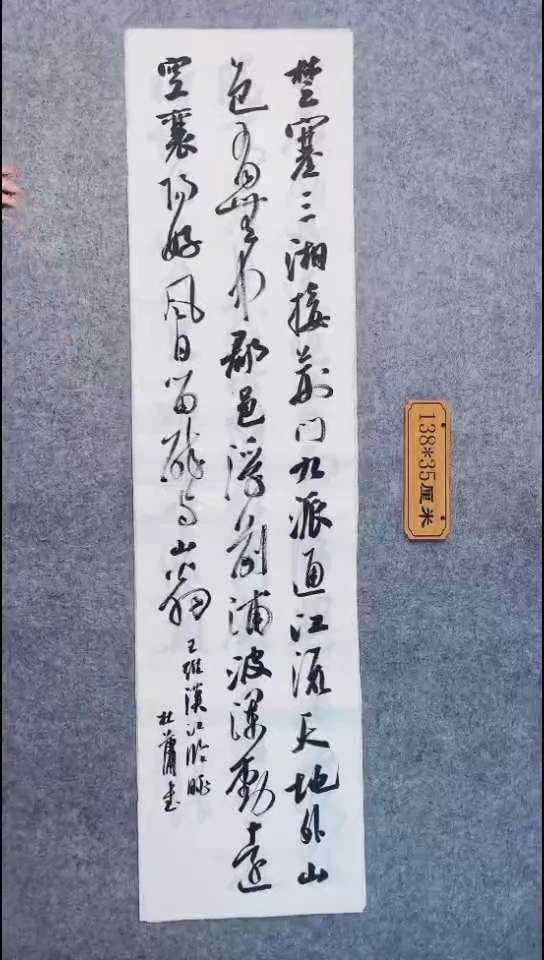 楚塞三湘接荆门九派通江流天地外山
色有无中郡邑浮前浦波澜動遠
空襄阳好风日留醉与山翁
王维漢江临眺
杜萧书
138*35厘米